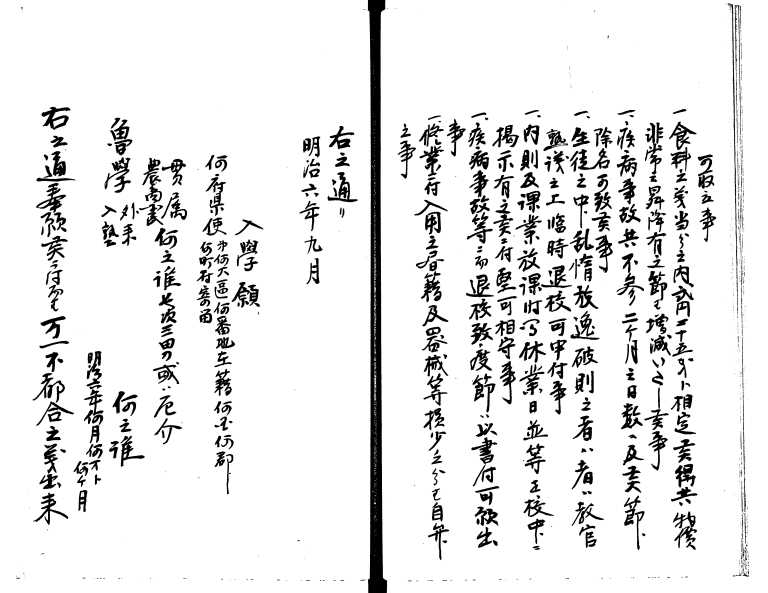 可取立事
一食料之義当分之内弐円二十五銭ト相定候得共物價
非常之昇降有之節ハ増減いたし候事
一疾病事故共不参二ケ月之日数ニ及候節ハ
除名可致候事
一生徒之中乱惰放逸破則之者ハ教官
熟議之上臨時退校可申付事
一内則及課業放課時間休業日並等正校中ニ
掲示有之候ニ付堅可相守事
一疾病事故等ニ而退校致度節ハ以書付可願出
事
一修業ニ付入用之書籍及器械等損少之分ハ自弁
之事
右之通リ
明治六年九月
入學願
何府県使 第何大區何番地左籍何国何郡
何町村寄留
貫属
農商 何之誰 二三男或ハ厄介
魯學 外来
入塾
何之誰
明治六年何月何才ト
何ケ月
右之通奉願候ニ付而ハ万一不都合之義出来